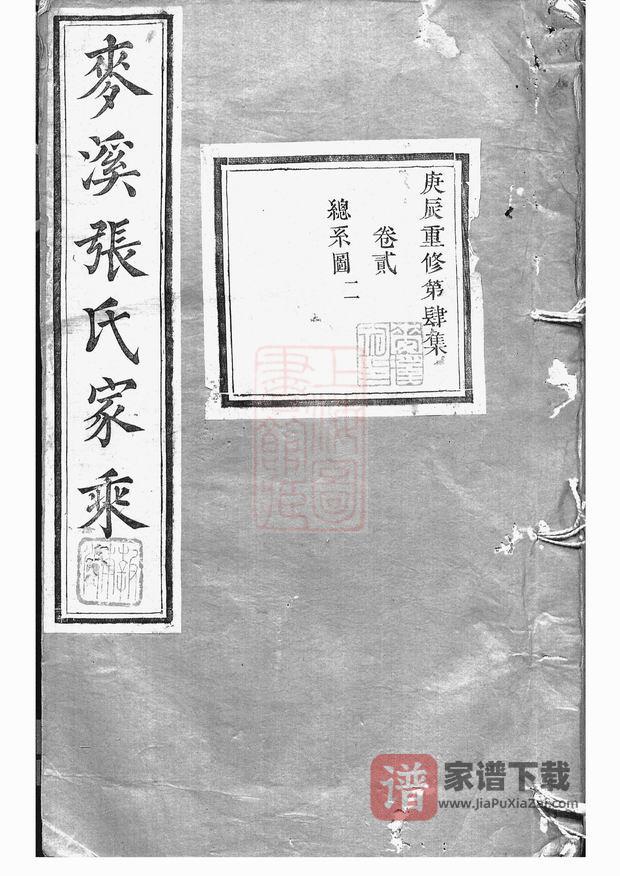 麥溪張氏家乘
庚辰重修第肆集
卷貳
總系圖二
上海圖書館藏
谱
家谱下载
www.JiaPuXiaZai.com